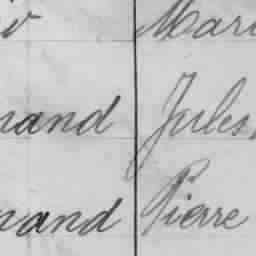 v Mari
nand Jules,
nand Pierre